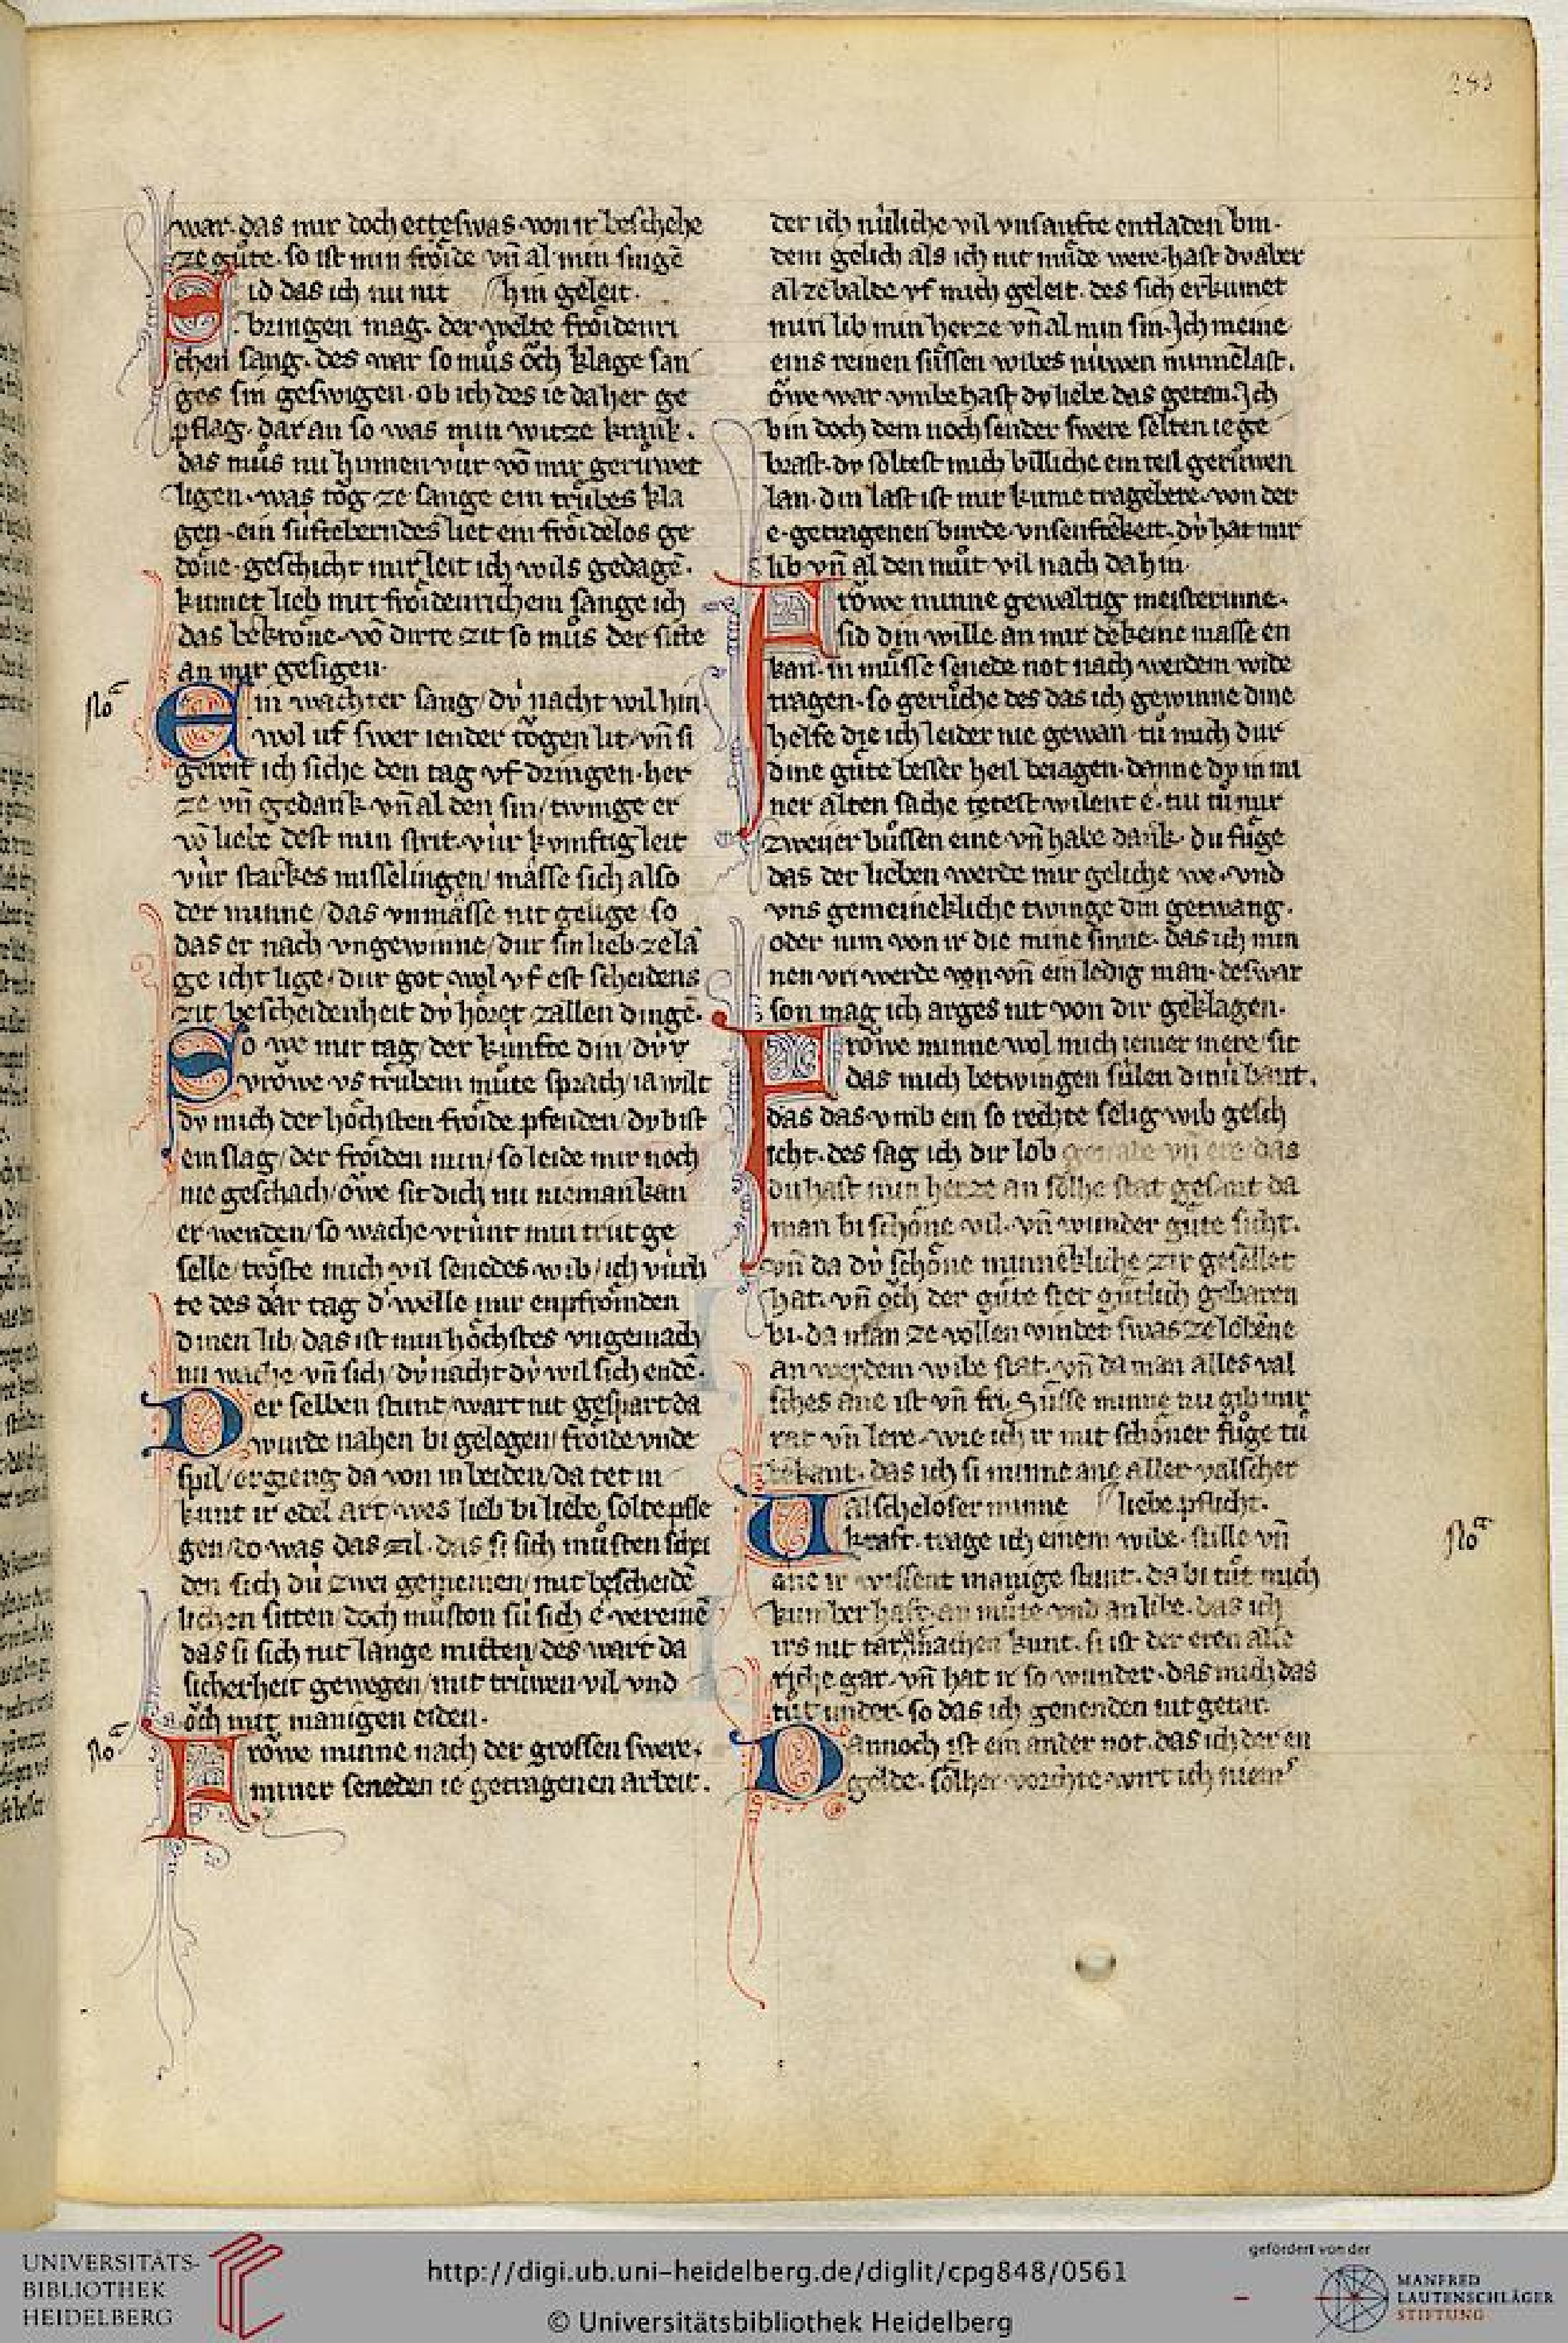 281
war. das mir doch etteswas. von ir beschehe
ze guͦte. so ist min froͤide vn̄ al min singē
Sid das ich nu nit hin geleit.
bringen mag. der welte froͤidenri
chen sang. des war so muͦs oͮch klage san
ges sin geswigen. ob ich des ie da her ge
pflag. dar an so was min witze krank.
das muͦs nu hinnen vúr vō mir gerúwet
ligen. was toͮg ze sange ein truͤbes kla
gen. ein súfteberndes liet ein froͤidelos ge
doͤne. geschicht mir leit ich wils gedagē.
kumet lieb mit froͤidenrichem sange ich
das bekroͤne. vō dirre zit so muͦs der sitte
an mir gesigen.
No͛
Ein wachter sang / dv́ nacht wil hin.
wol uf swer iender toͮgen lit / vn̄ si
gereit ich siche den tag vf dringen. her
ze vn̄ gedank vn̄ al den sin / twinge er
vō liebe dest min strit. vúr kvnftig leit
vúr starkes misselingen / maͤsse sich also
der minne / das vnmaͤsse nit gesige / so
das er nach vngewinne / dur sin lieb ze lā
ge icht lige / dur got wol vf est scheidens
zit / bescheidenheit dv́ hoͤret zallen dingē.
So we mir tag / der kúnfte din / dv́ v
vrowe vs truͤbem muͦte sprach / ia wilt
dv mich der hoͤchsten froͤide pfenden / dv bist
ein slag / der froͤiden min / so leide mir noch
nie geschach / owe sit dich nu nieman kan
erwenden / so wache vrúnt min trut ge
selle / troͤste mich vil senedes wib / ich vúrh
te des dar tag d͛ welle mir enpfroͤmden
dinen lib / das ist min hoͤchstes vngemach
nu wache vn̄ sich / dv́ nacht dv́ wil sich endē.
Der selben stunt / wart nit gespart da
wurde nahen bi gelegen / froͤide vnde
spil / ergieng da von in beiden / da tet in
kunt ir edel art / wes lieb bi liebe solte pfle
gen / do was das zil. das si sich muͦsten schei
den sich dú zwei gemeinen / mit bescheidē
lichen sitten / doch muͦston sú sich e vereinē
das si sich nit lange mitten / des wart da
sicherheit gewegen / mit trúwen vil vnd
oͮch mit manigen eiden.
No͛
Frowe minne nach der grossen swere.
miner seneden ie getragenen arbeit.
der ich núliche vil vnsanfte entladen bin.
dem gelich als ich nit muͤde were. hast dv aber
al ze balde vf mich geleit. des sich erkumet
min lib min herze vn̄ al min sin. Ich meine
eins reinen suͤssen wibes núwen minnelast.
owe war vmbe hast dv liebe das getan. Ich
bin doch dem noch sender swere selten ie ge
brast. dv soltest mich billiche ein teil gerúwen
lan. din last ist mir kume tragebere. von der
e. getragenen burde. vnsenftekeit. dv́ hat mir
lib vn̄ al den muͦt vil nach da hin.
Frowe minne gewaltig meisterinne.
sid din wille an mir dekeine masse en
kan. in muͤsse senede not nach werdem wibe
tragen. so geruͦche des das ich gewinne dine
helfe die ich leider nie gewan. tuͦ mich dur
dine guͤte besser heil beiagen. danne dv in mi
ner alten sache tetest wilent e. nu tuͦ mir
zweyer buͦssen eine vn̄ habe dank. du fuͤge
das der lieben werde mir geliche we. vnd
vns gemeinekliche twinge din getwang.
oder nim von ir die mine sinne. das ich min
nen vri werde von vn̄ ein ledig man. deswar
son mag ich arges nit von dir geklagen.
Frowe minne wol mich iemer mere / sit
das mich betwingen súlen dinú bant.
das das vmb ein so rechte selig wib gesch
icht. des sag ich dir lob genate vn̄ ere / das
du hast min herze an solhe stat gesant da
man bi schoͤne vil. vn̄ wunder guͤte sicht.
vn̄ da dv́ schoͤne minnekliche zir gesellet
hat. vn̄ oͮch der guͤte siet guͤtlich gebaren
bi. da man ze vollen vindet swas ze lobēne
an werdem wibe stat. vn̄ da man alles val
sches ane ist vn̄ fri. Suͤsse minne nu gib mir
rat vn̄ lere. wie ich ir mit schoͤner fuͦge tuͦ
bekant. das ich si minne ane aller valscher
Valscheloser minne liebe pflicht.
kraft. trage ich einem wibe. stille vn̄
No͛
ane ir wissent manige stunt. da bi tuͦt mich
kumberhaft. an muͦte vnd an libe. das ich
irs nit tar machen kunt. si ist der eren alse
riche gar. vn̄ hat ir so wunder. das mich das
tuͦt vnder. so das ich genenden nit getar.
Dannoch ist ein ander not. das ich der en
gelde. solher vorchte wirt ich niem͛
UNIVERSITÄTS-
BIBLIOTHEK
HEIDELBERG
http://digi.ub.uni-heidelberg.de/diglit/cpg848/0561
© Universitätsbibliothek Heidelberg
gefördert von der
MANFRED
LAUTENSCHLÄGER
STIFTUNG